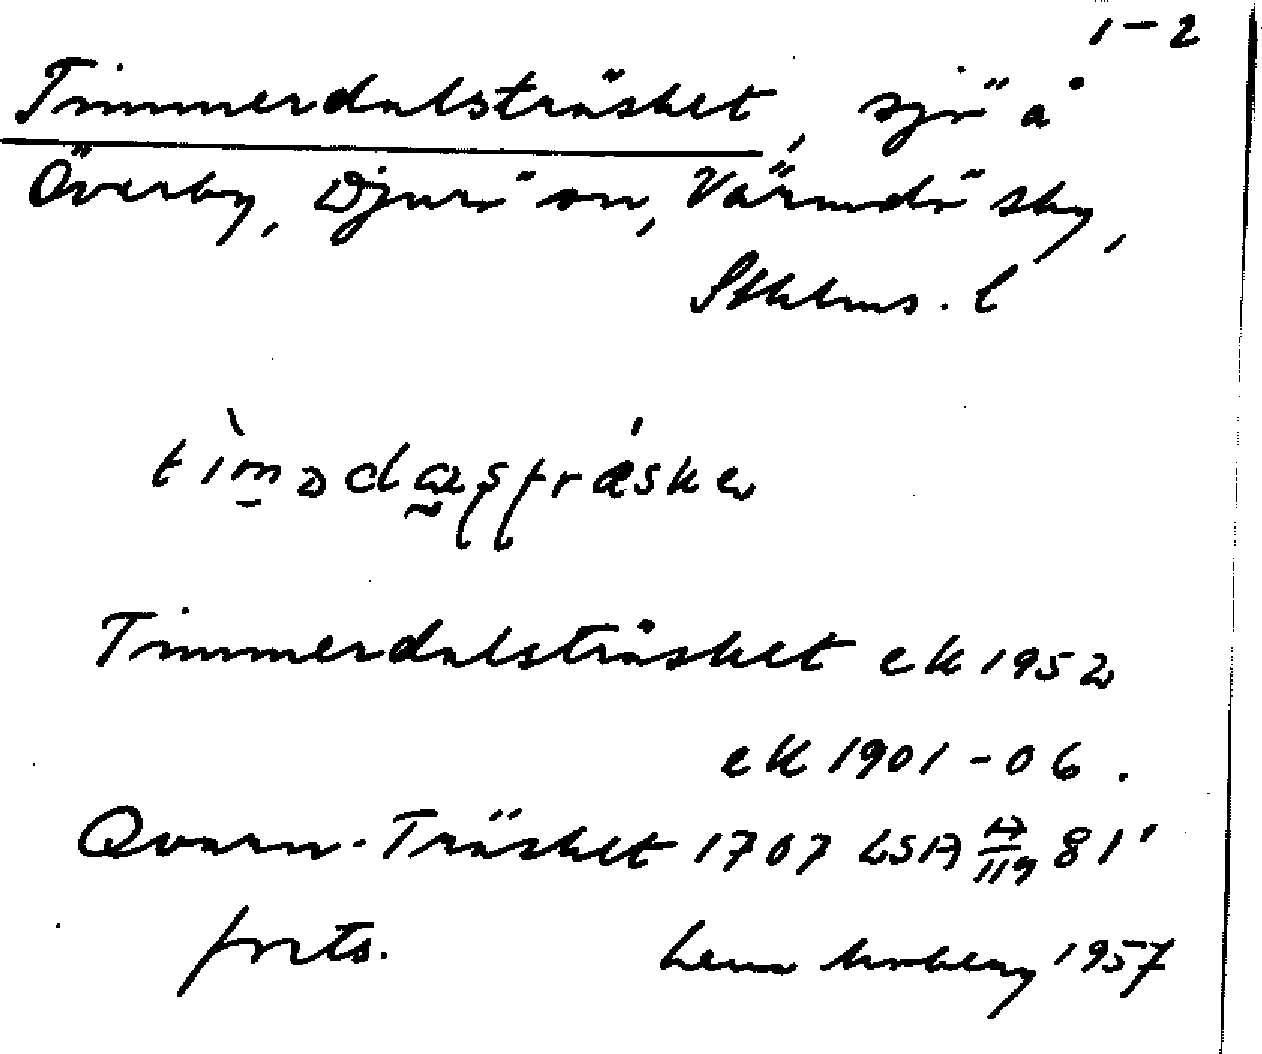 1-2
Timmerdalsträsket, sjö å
Överby, Djurö sn, Värmdö sky,
Sthlms. l
Timmerdalsträsket ek 1952
ek 1901-06.
Qvarn-Träsket 1707 LSA A/119 81'
forts. Lena Moberg 1957